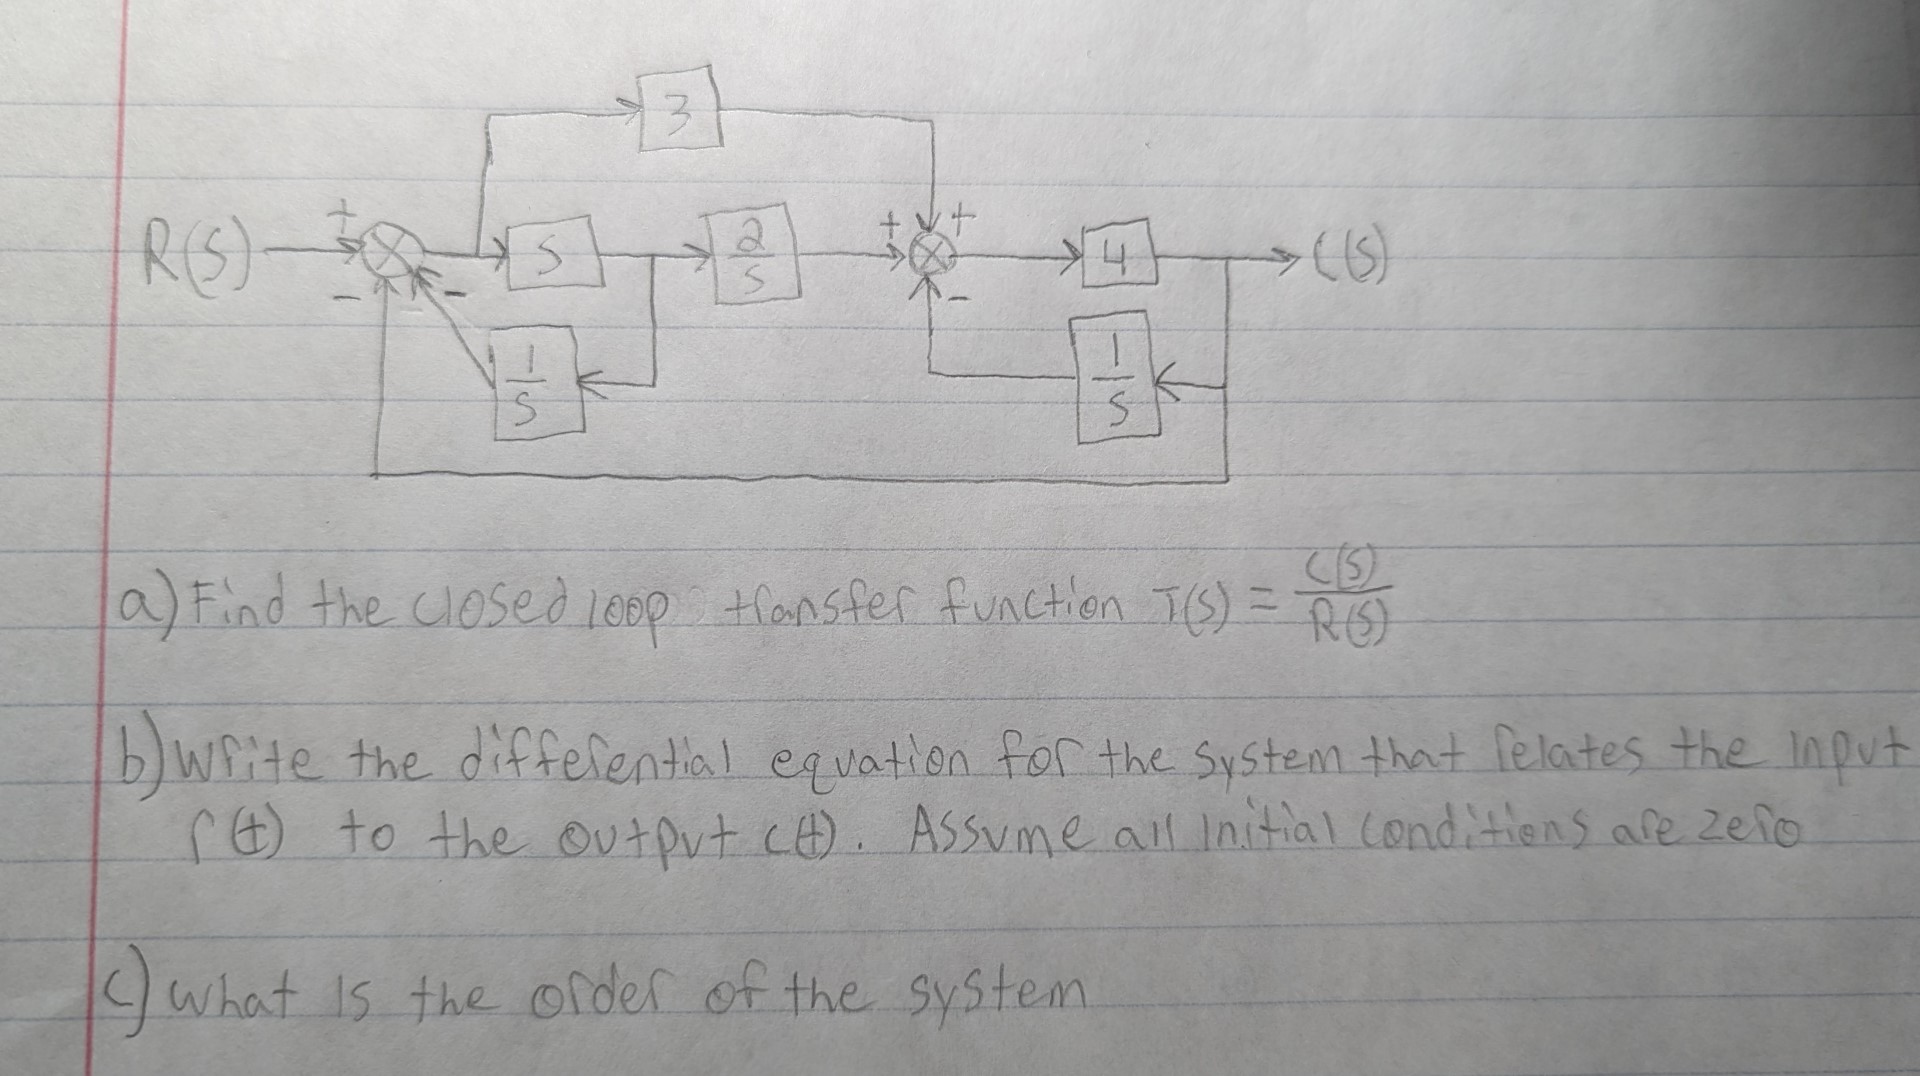 3
R(S) + - - S 2/S + + - 4 C(S)
1/S 1/S
a) Find the closed loop transfer function T(S) = C(S)/R(S)
b) Write the differential equation for the system that relates the input
r(t) to the output c(t). Assume all initial conditions are zero
c) what is the order of the system